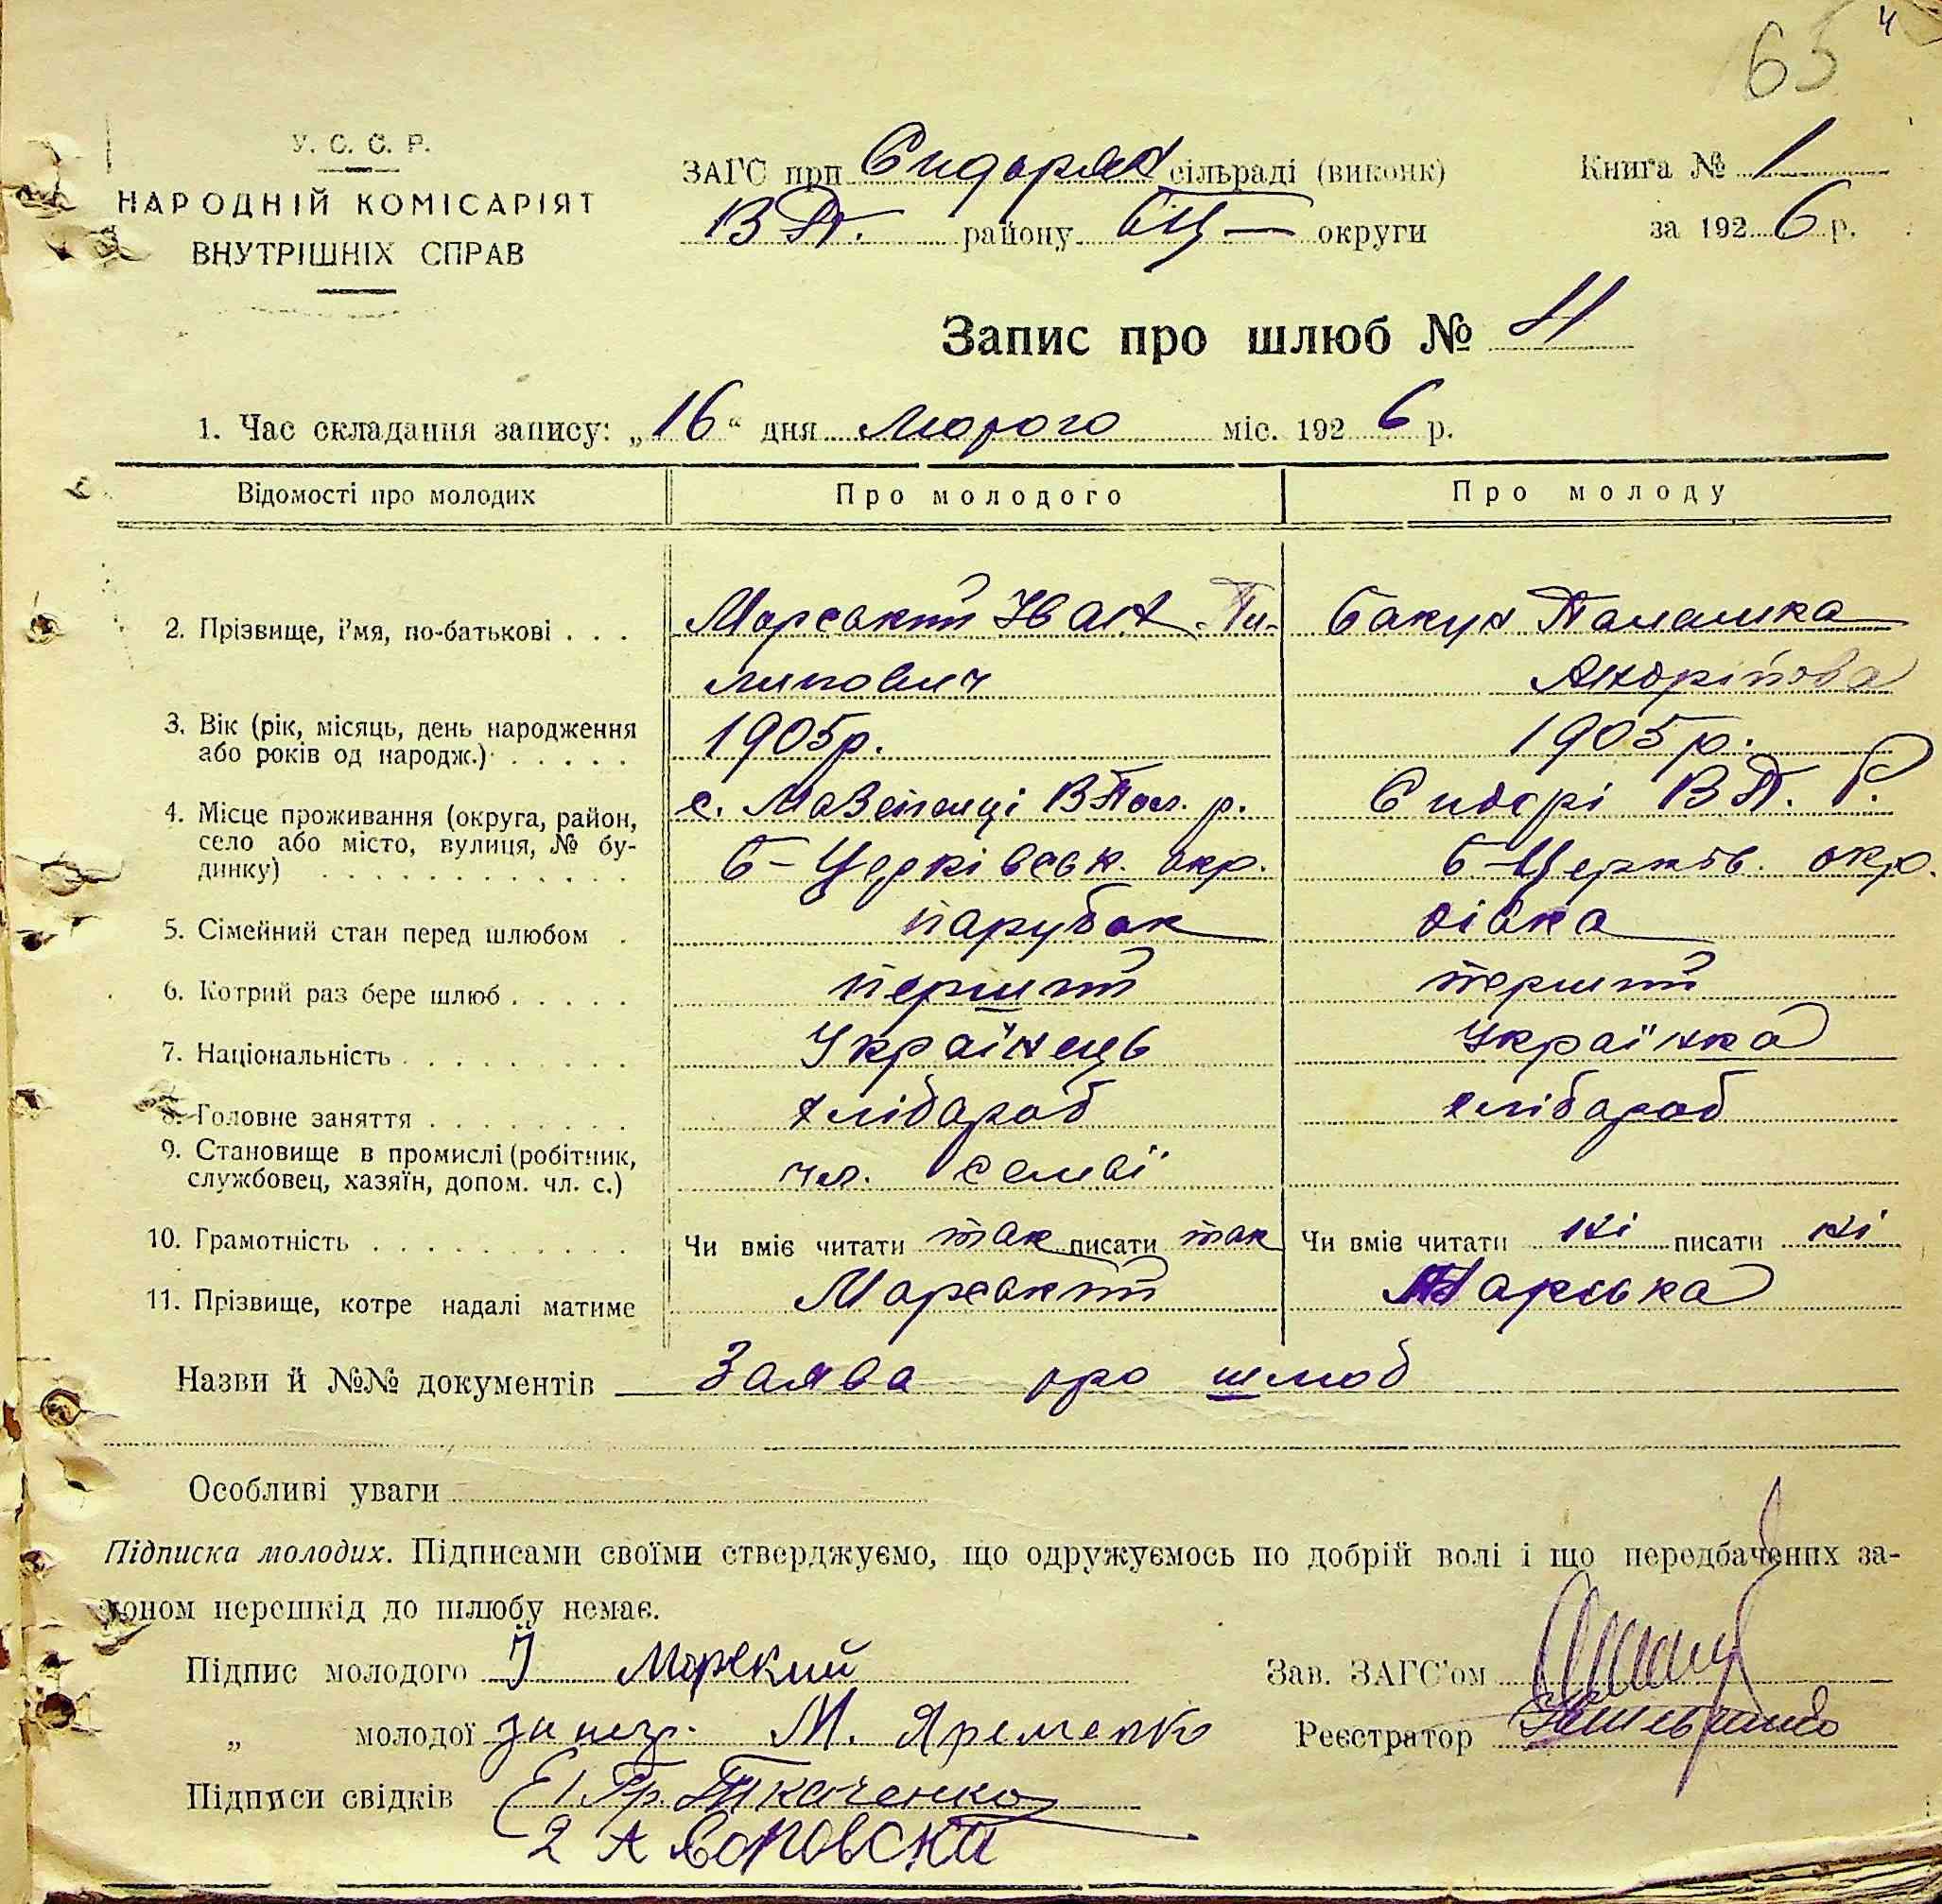 65 4
У. С. С. Р.
НАРОДНІЙ КОМІСАРІЯТ
ВНУТРІШНІХ СПРАВ
ЗАГС при Сидорях сільраді (виконк)
ВП. району БЦ округи
Книга № 1
за 1926 р.
Запис про шлюб № 11
1. Час складання запису: „16“ дня лютого міс. 1926 р.
Відомості про молодих Про молодого Про молоду
2. Прізвище, і'мя, по-батькові . . . Морський Іван Пи- Бакун Палашка
липович Андріївна
3. Вік (рік, місяць, день народження 1905р. 1905р.
або років од народж.) . . . . .
4. Місце проживання (округа, район, с. Мазепинці ВПол. р. Сидорі ВП. Р.
село або місто, вулиця, № бу- Б-Церківськ. окр. Б-Церків. окр.
динку) . . . . . . . . . . . .
5. Сімейний стан перед шлюбом . парубок дівка
6. Котрий раз бере шлюб . . . . . перший перший
7. Національність . . . . . . . . . Українець Українка
8. Головне заняття . . . . . . . . хлібороб хлібороб
9. Становище в промислі (робітник, чл. семьї
службовец, хазяїн, допом. чл. с.)
10. Грамотність . . . . . . . . . . Чи вміє читати так писати так Чи вміє читати ні писати ні
11. Прізвище, котре надалі матиме Морський Марська
Назви й №№ документів Заява про шлюб
Особливі уваги
Підписка молодих. Підписами своїми стверджуємо, що одружуємось по добрій волі і що передбачених за-
коном перешкід до шлюбу немає.
Підпис молодого І Морский
Зав. ЗАГС'ом
„ молодої за негр. М. Яременко
Реєстратор
Підписи свідків 1. Гр. Ткаченко
2 А